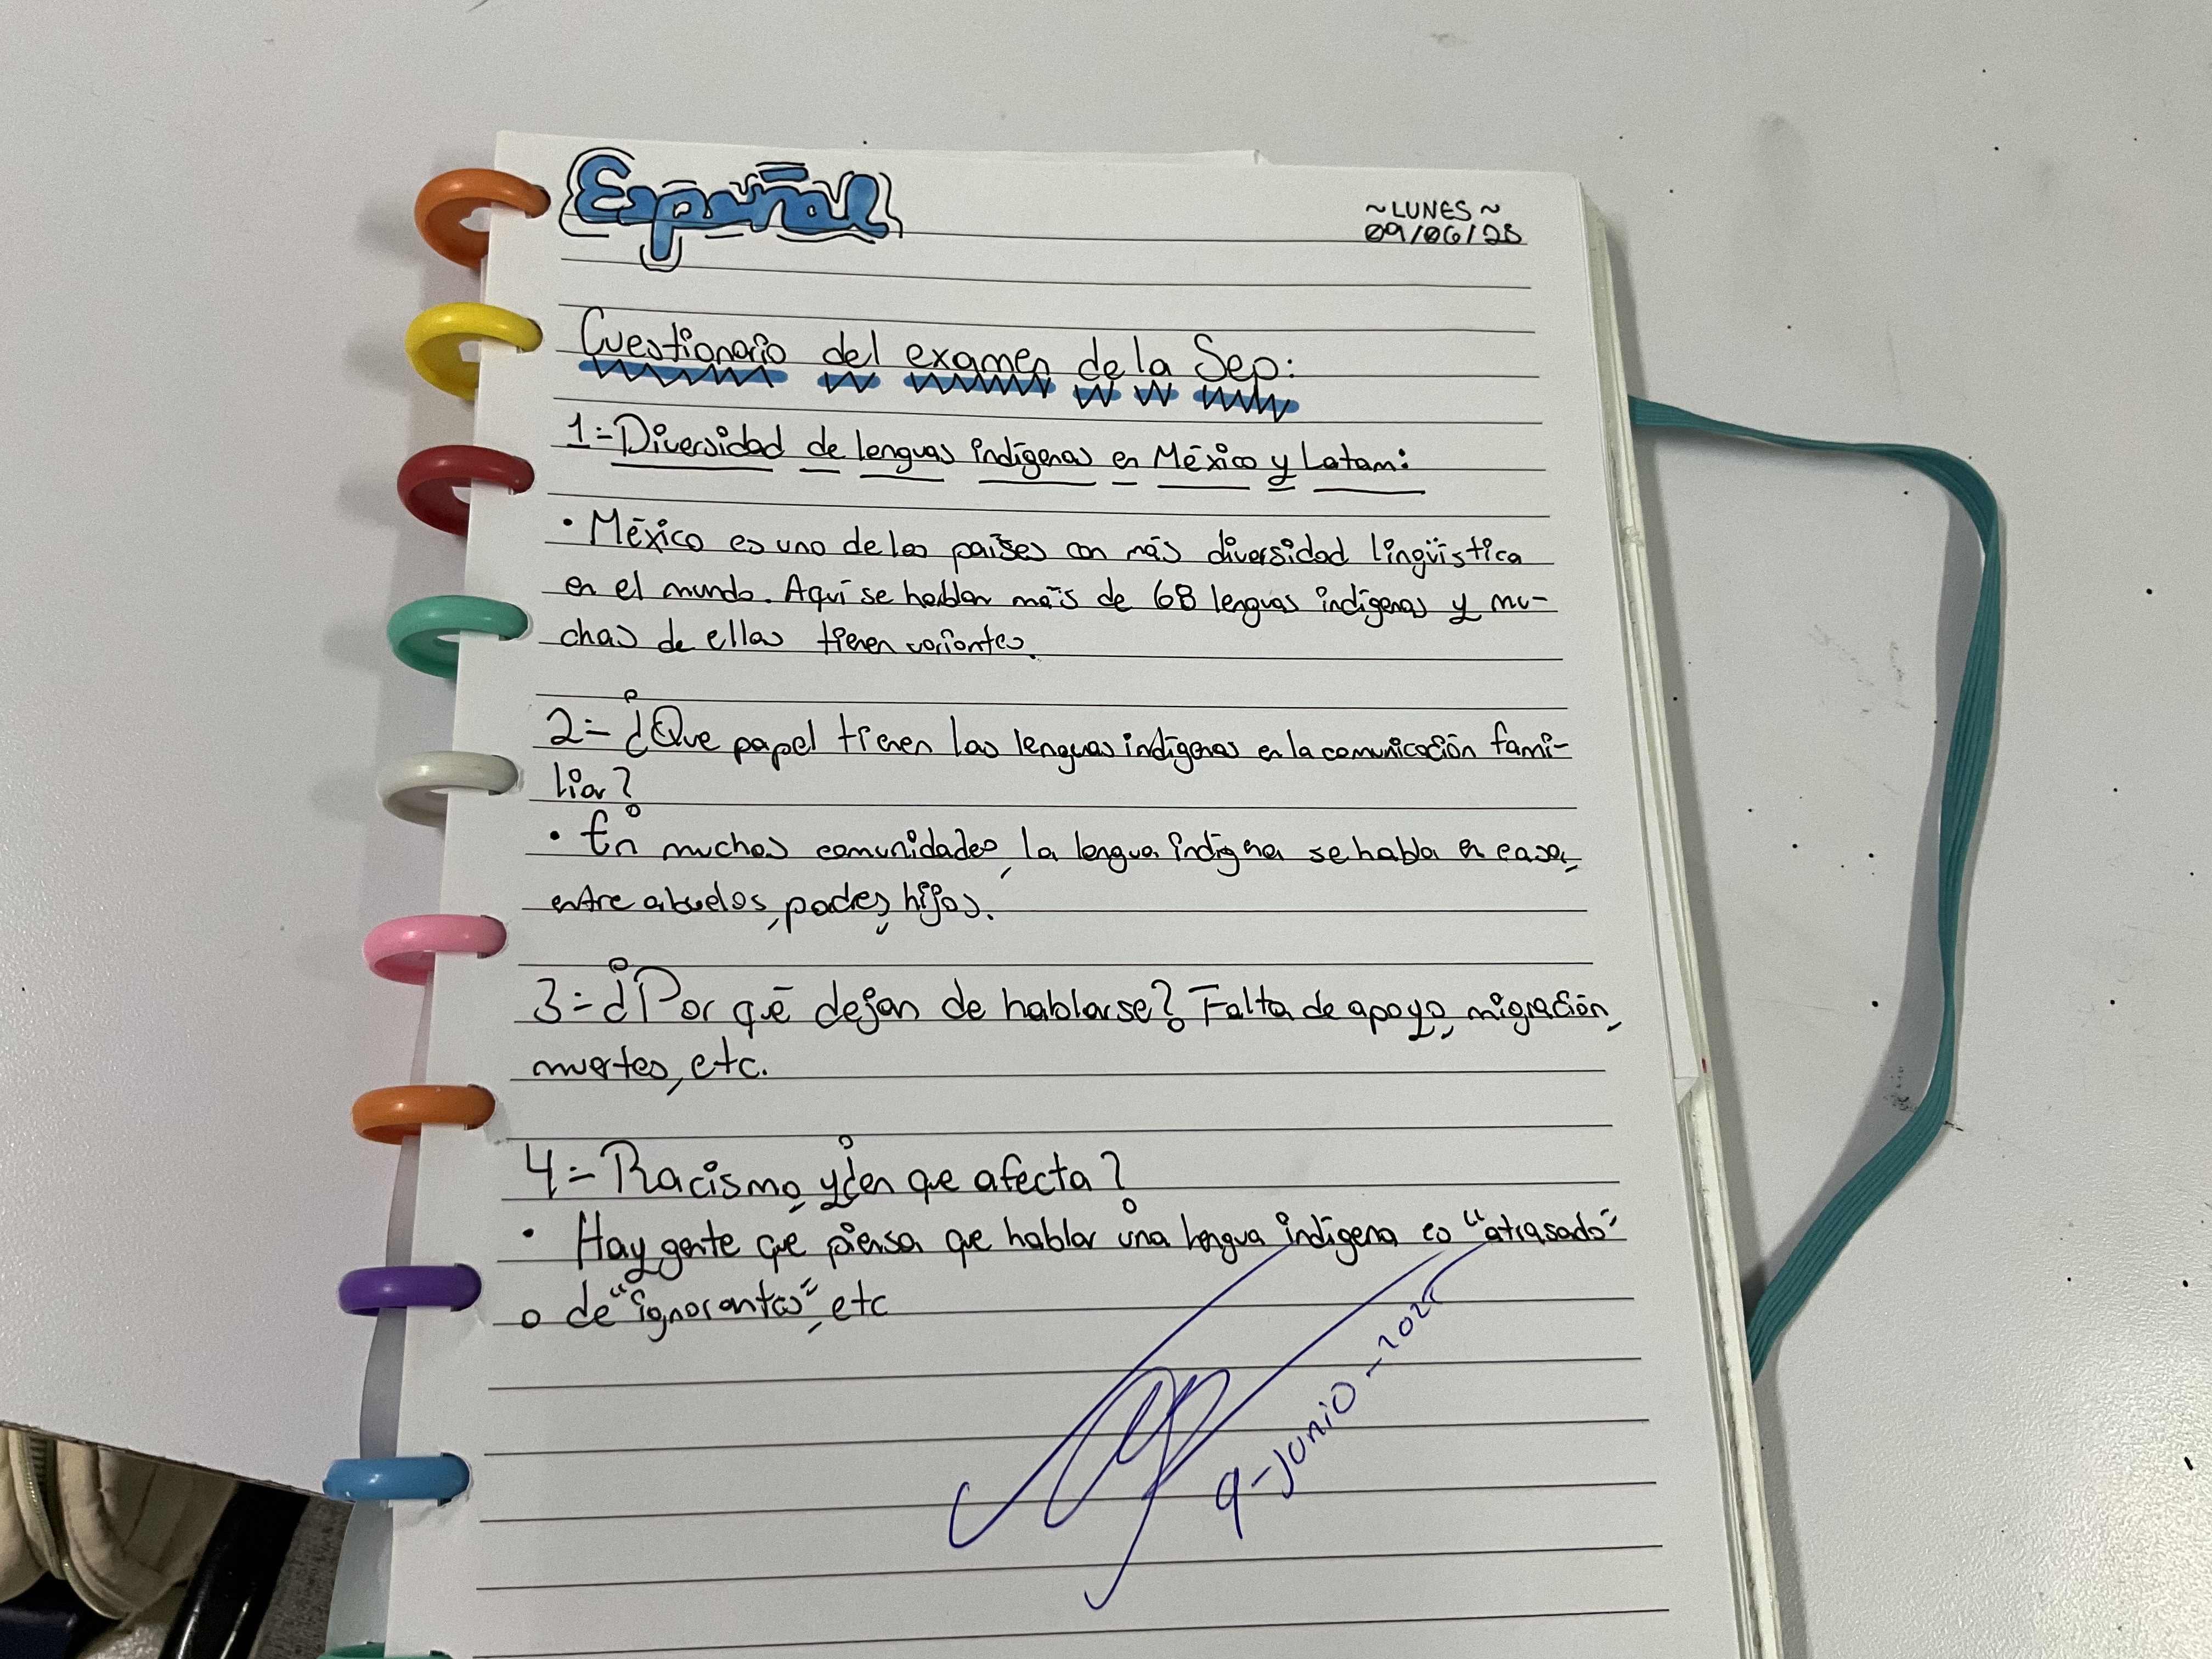 Español
~LUNES~
09/06/25
Cuestionario del examen de la Sep:
1=Diversidad de lenguas indígenas en México y Latam:
• México es uno de los países con más diversidad lingüística
en el mundo. Aquí se hablan más de 68 lenguas indígenas y mu-
chas de ellas tienen variantes.
2= ¿Que papel tienen las lenguas indígenas en la comunicación fami-
liar?
• En muchas comunidades, la lengua indígena se habla en casa,
entre abuelos, padres, hijos.
3= ¿Por qué dejan de hablarse? Falta de apoyo, migración,
muertes, etc.
4= Racismo, y ¿en que afecta?
• Hay gente que piensa que hablar una lengua indígena es "atrasado"
o de "ignorantes", etc
9-junio-2025